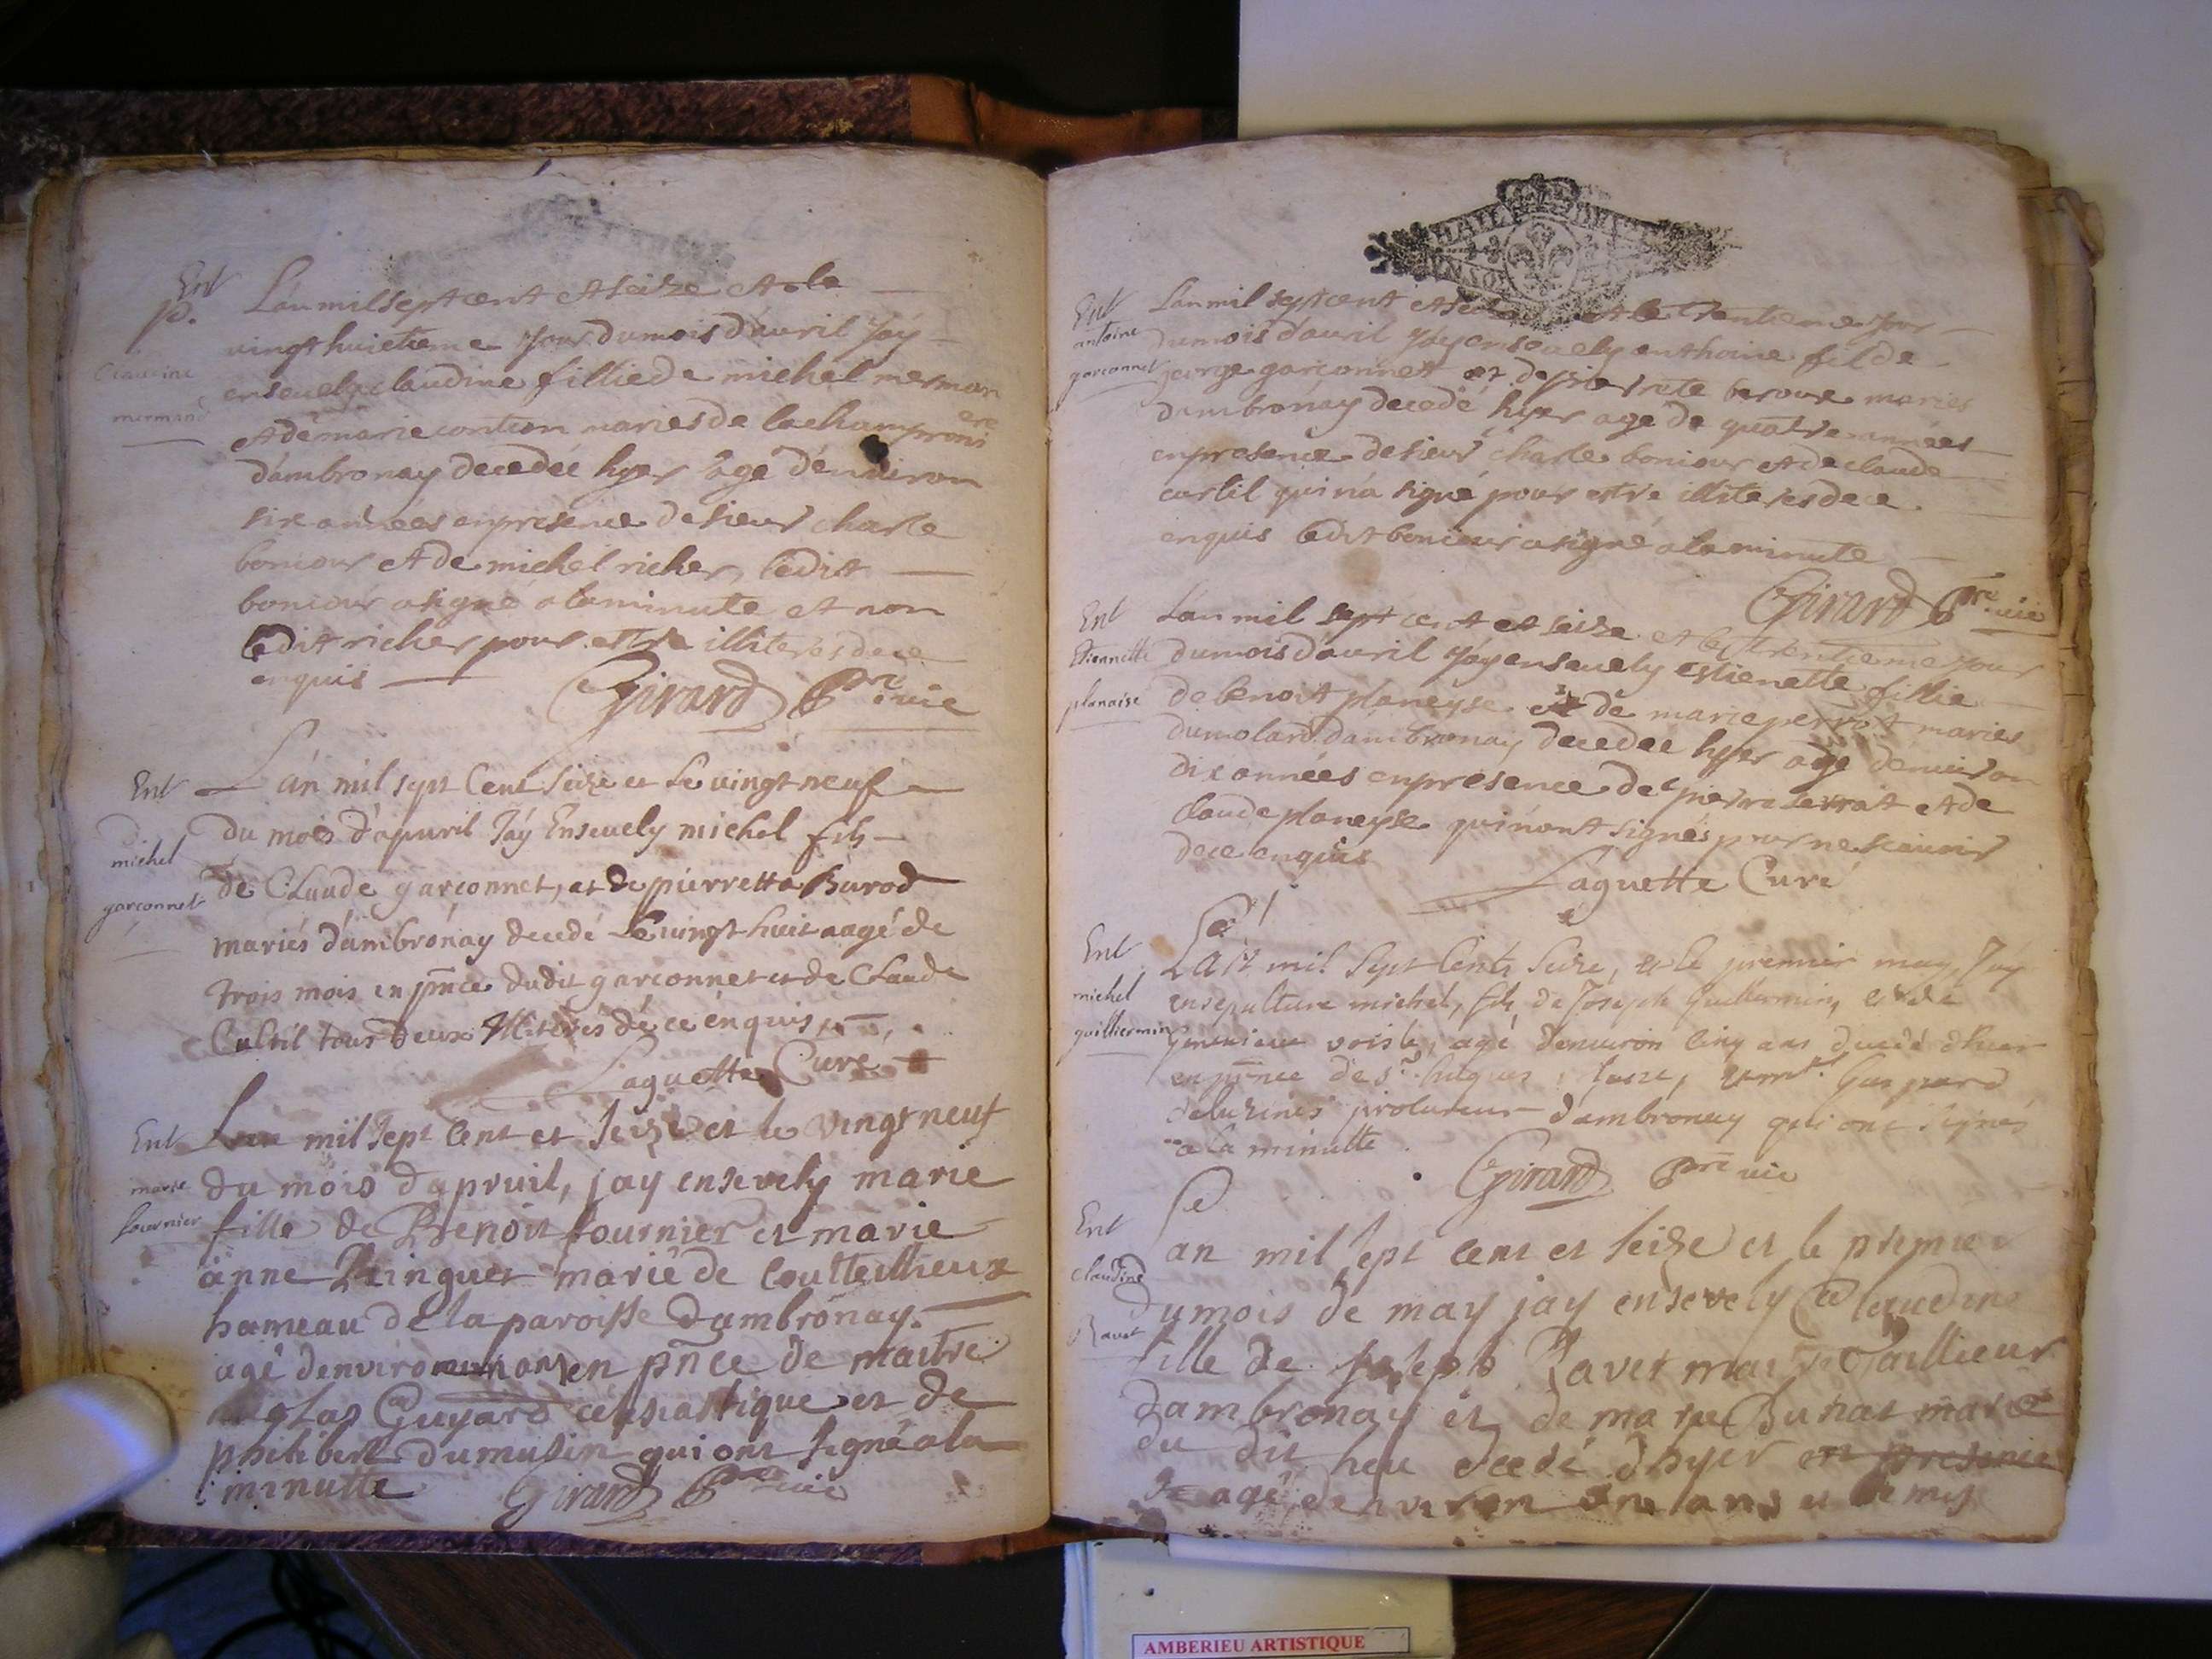 Ent
p.
Claudine
mermand
L'an mil sept cent et seize et le
vingt huictieme jour du mois d'auril j'ay
enseuely claudine fillie de michel merman
et de marie contion mariés de la champroniere
d'ambronay decedée hyer agé d'enuiron
six années en presence de sieur charle
boniour et de michel richer, ledit
boniour a signé a la minute et non
ledit richer pour estre illiterés de ce
enquis Girard Ptre vic
Ent
michel
garconnet
L'an mil sept Cent Seize et Le vingt neuf
du mois d'apuril J'ay Enseuely michel fils
de Claude garconnet, et de pierrette Burod
mariés d'ambronay decedé Le vingt huit aagé de
trois mois en pnce dudit garconnet et de Claude
Cultil tous deux Illiterés de ce enquis
Laguette Curé
Ent
marie
fournier
Lan mil sept cent et seize et le vingt neuf
du mois dapvuil, jay ensevely marie
fille de Benoit fournier et marie
anne Bringuet marié de Coutteillieux
hameau de la paroisse dambronay.
agé denviron en pnce de maitre
Guyard eclesiastique et de
philibert dumusin qui ont signé a la
minutte Girard Ptre vic
Ent
antoine
garconnet
L'an mil sept cent et seize et le trentieme jour
du mois d'auril j'ay enseuely anthoine fil de
george garconnet et de pierrete beroux mariés
d'ambronay decedé hyer agé de quatre années
en presence de sieur charle boniour et de claude
curtil qui n'a signé pour estre illiterés de ce
enquis ledit boniour a signé a la minute
Girard Ptre vic
Ent
Etiennette
planaise
L'an mil sept cent et seize et le trentieme jour
du mois d'auril j'ay enseuely estienette fillie
de benoit planeyse et de marie perrot mariés
du molard d'ambronay decedée hyer agé d'enuiron
dix années en presence de pierre serrait et de
claude planeyse qui n'ont signés pour ne scauoir
de ce enquis
Laguette Curé
Ent
michel
guilliermin
L'an mil Sept Cents Seize, et le premier may, J'ay
ensepulture michel, fils de Joseph Guillermin, et de
Geneuieue voisle, agé d'enuiron cinq ans decedé dhier
en pnce de Sr. hugues, et mtre. Gaspard
procureur d'ambronay qui ont signés
a la minutte
Girard Ptre vic
Ent
claudine
Ravet
Lan mil sept cent et seize et le premier
du mois de may jay ensevely Claudine
fille de Joseph Ravet maitre Taillieur
dambronay et de marie Bunat marié
du dit lieu decedé dhyer en presence
agé denviron une ans et demis
AMBERIEU ARTISTIQUE